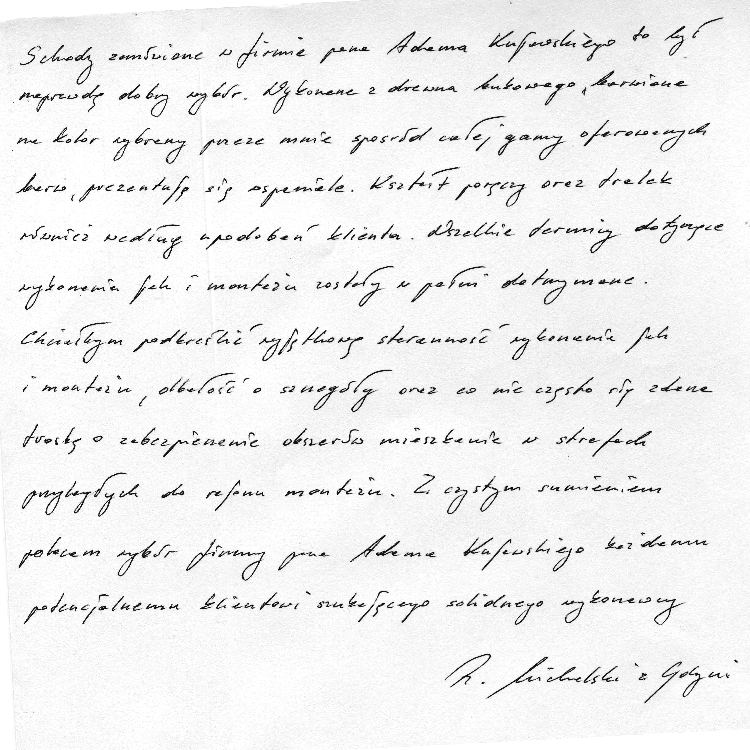 Schody zamówione w firmie pana Adama Kujawskiego to był
naprawdę dobry wybór. Wykonane z drewna bukowego, barwione
na kolor wybrany przeze mnie spośród całej gamy oferowanych
barw, prezentują się wspaniale. Kształt poręczy oraz tralek
również według upodobań klienta. Wszelkie terminy dotyczące
wykonania jak i montażu zostały w pełni dotrzymane.
Chciałbym podkreślić wyjątkową staranność wykonania jak
i montażu, dbałość o szczegóły oraz co nie często się zdarza
troskę o zabezpieczenie obszarów mieszkania w strefach
przyległych do rejonu montażu. Z czystym sumieniem
polecam wybór firmy pana Adama Kujawskiego każdemu
potencjalnemu klientowi szukającego solidnego wykonawcy
R. Michalski z Gdyni